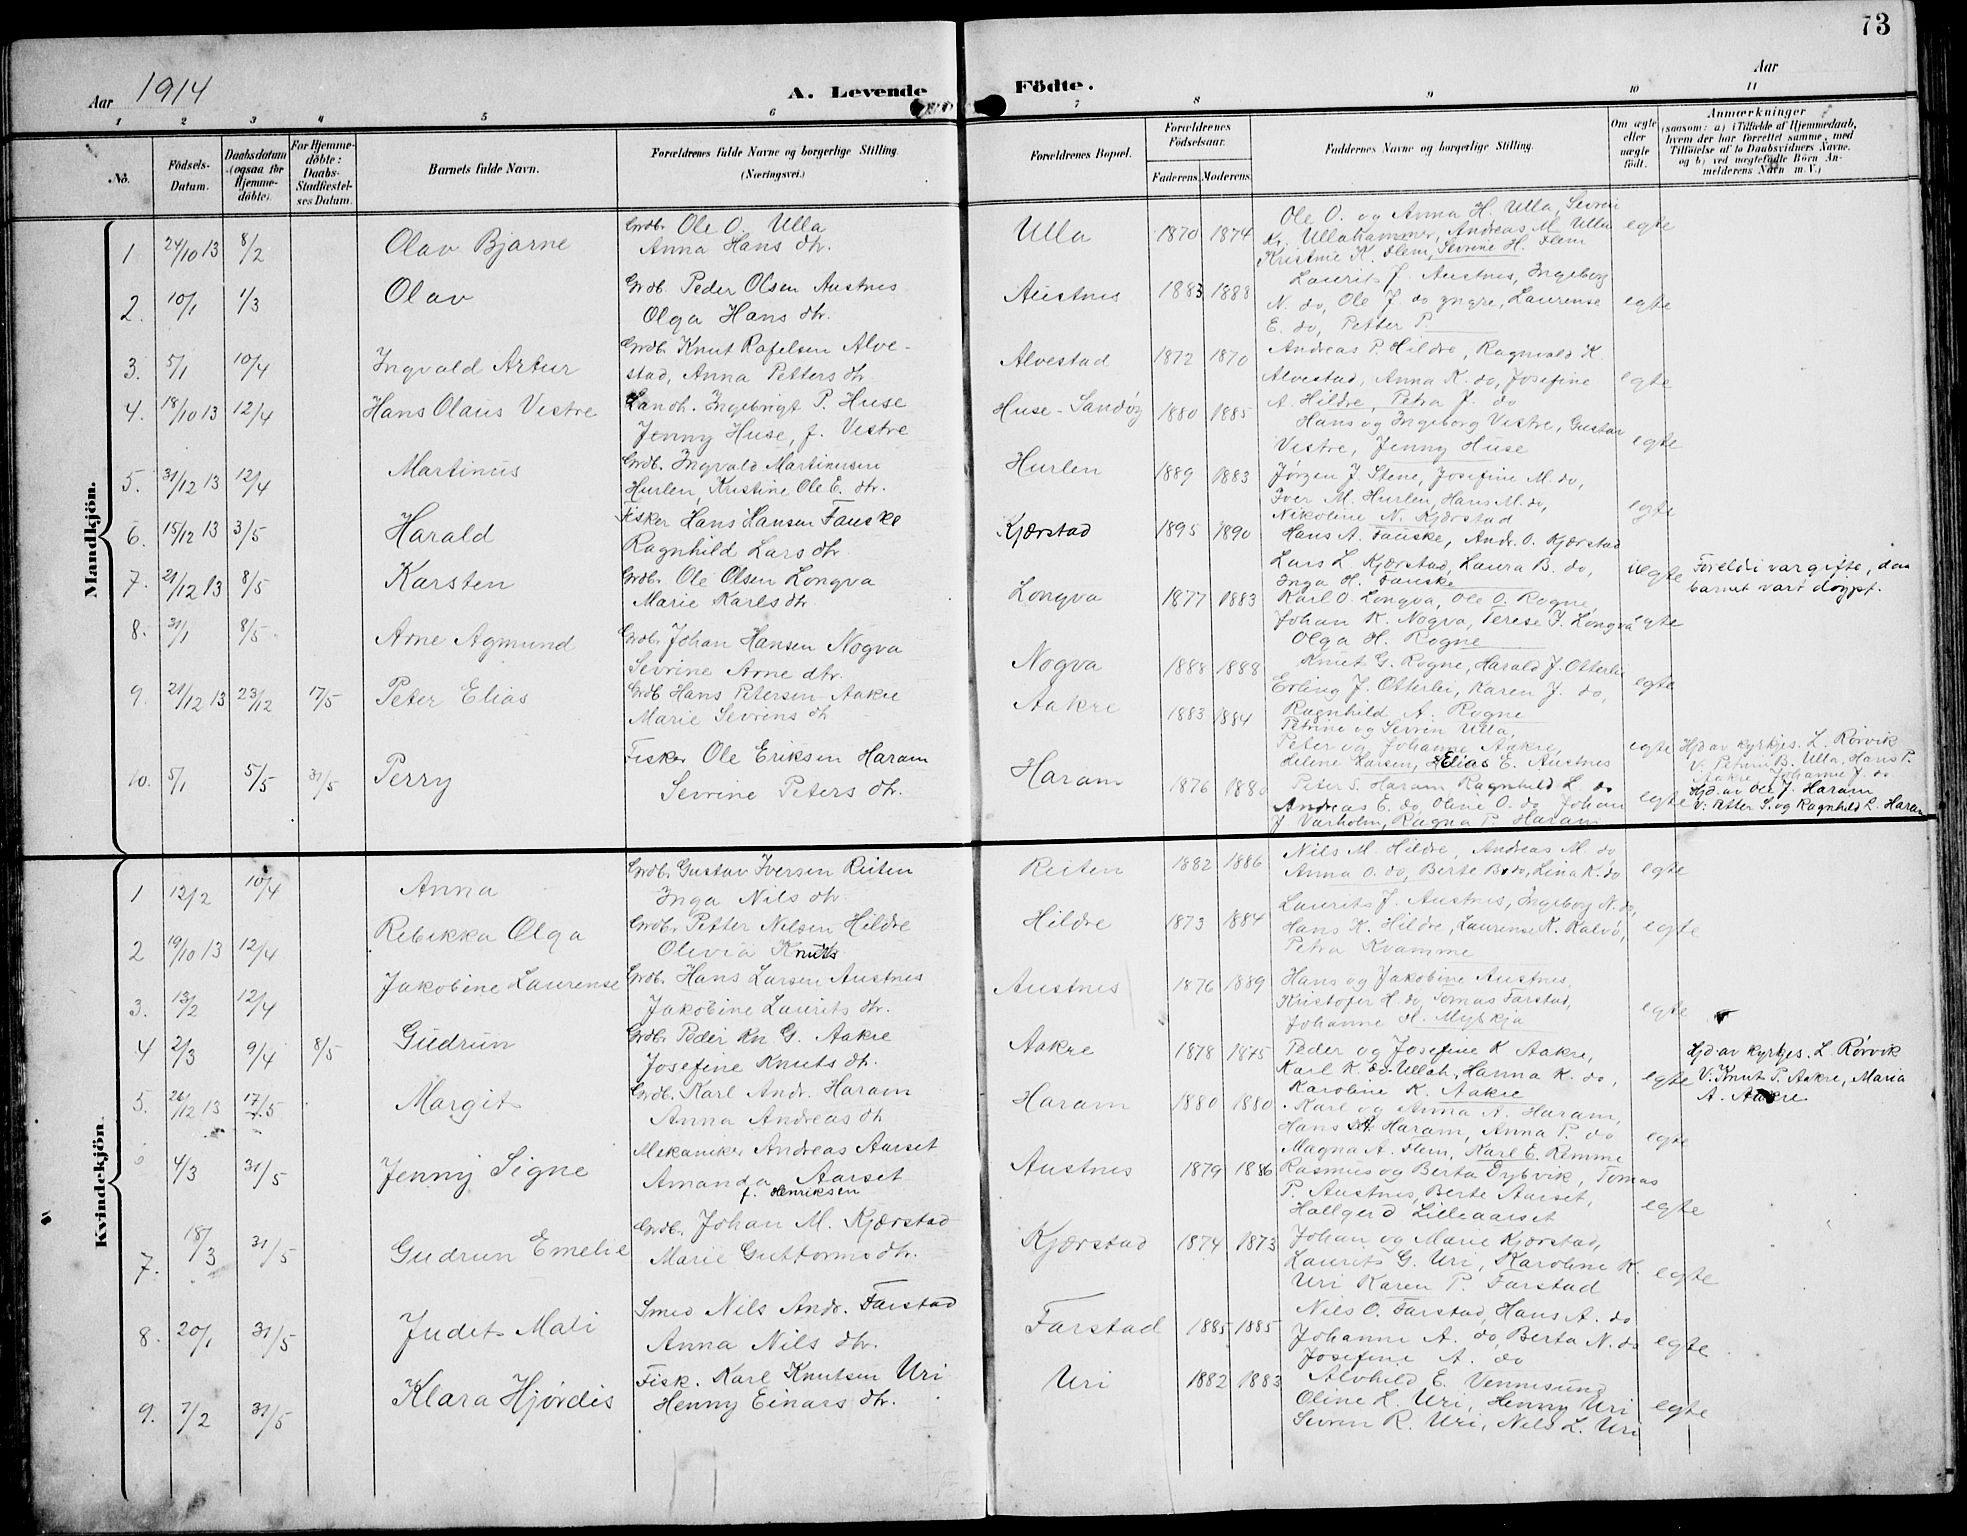 73
Aar 1914
A. Levende Födte.
Aar
1 2 3 4 5 6 7 8 9 10 11
No.
Födsels-Datum.
Daabsdatum (ogsaa for Hjemmedöbte).
For Hjemmedöbte: Daabs-Stadfæstelses Datum.
Barnets fulde Navn.
Forældrenes fulde Navne og borgerlige Stilling. (Næringsvei.)
Forældrenes Bopæl.
Forældrenes Födselsaar.
Faderens. Moderens.
Faddernes Navne og borgerlige Stilling.
Om ægte eller uægte födt.
Anmærkninger
(saasom: a) i Tilfælde af Hjemmedaab,
hvem der har forrettet samme, med
Tilföielse af to Daabsvidners Navne.
og b) ved uægtefödte Börn An-
melderens Navn m. V.)
Mandkjön.
1 24/10 13 8/2 Olav Bjarne Grdb. Ole O. Ulla Anna Hans dtr. Ulla 1870 1874 Ole O. og Anna H. Ulla, Sevrin Kr. Ullakammer, Andreas M. Ulla Kristine K. Flem, Sevrine H. Flem egte
2. 10/1 1/3 Olav Grdb. Peder Olsen Austnes Olga Hans dtr. Austnes 1883 1888 Laurits J. Austnes, Ingeborg N. do, Ole J. do yngre, Laurense E. do, Petter P. egte
3. 5/1 10/4 Ingvald Artur Grdb. Knut Rafelsen Alvestad, Anna Petters dtr. Alvestad 1872 1870 Andreas P. Hildre, Ragnvald K. Alvestad, Anna K. do, Josefine A. Hildre, Petra J. do egte
4. 18/10 13 12/4 Hans Olaus Vestre Landh. Ingebrigt P. Huse Jenny Huse, f. Vestre Huse - Sandøy 1880 1885 Hans og Ingeborg Vestre, Gustav Vestre, Jenny Huse egte
5. 31/12 13 12/4 Martinus Grdb. Ingvald Martinusen Hurlen, Kristine Ole E. dtr. Hurlen 1889 1883 Jørgen J. Stene, Josefine M. do, Iver M. Hurlen, Hans M. do, Nikoline N. Kjærstad egte
6. 15/12 13 3/5 Harald Fisker Hans Hansen Fauske Ragnhild Lars dtr. Kjærstad 1895 1890 Hans A. Fauske, Andr. O. Kjærstad Lars L. Kjærstad, Laura B. do, Inga H. Fauske uegte Foreldri var gifte, daa barnet vart døypt.
7. 21/12 13 8/5 Karsten Grdb. Ole Olsen Longva Marie Karls dtr. Longva 1877 1883 Karl O. Longva, Ole O. Rogne, Johan K. Nogva, Terese J. Longva Olga H. Rogne egte
8. 31/1 8/5 Arne Agmund Grdb. Johan Hansen Nogva Sevrine Arne dtr. Nogva 1888 1888 Knut G. Rogne, Harald J. Otterlei Erling J. Otterlei, Karen J. do, Ragnhild A. Rogne egte
9. 21/12 13 23/12 17/5 Peter Elias Grdb Hans Petersen Aakre Marie Sevrins dtr Aakre 1883 1884 Petrine og Sevrin Ulla, Peter og Johanne Aakre, Helene Larsen, Elias E. Austnes egte Hjd av kyrkjes. L. Rørvik V: Petrine B. Ulla, Hans P. Aakre, Johanne J. do
10. 5/1 5/5 31/5 Perry Fisker Ole Eriksen Haram Sevrine Peters dtr. Haram 1876 1880 Peter S. Haram Ragnhild L. do Andreas E. do, Oline O. do, Johan J. Varholm, Ragna P. Haram egte Hjd. av Ole J. Haram V: Petter S. og Ragnhild L. Haram
Kvindekjön.
1 12/2 10/4 Anna Grdb. Gustav Iversen Reiten Inga Nils dtr. Reiten 1882 1886 Nils M. Hildre, Andreas M. do, Anna O. do, Berte B. do, Lina K. do egte
2 19/10 13 12/4 Rebekka Olga Grdb. Petter Nilsen Hildre Olivia Knuts Hildre 1873 1884 Laurits J. Austnes, Ingeborg N. do, Hans K. Hildre, Laurense K. Kalvø, Petra Kvamme egte
3. 13/2 12/4 Jakobine Laurense Grdb. Hans Larsen Austnes Jakobine Laurits dtr. Austnes 1876 1889 Hans og Jakobine Austnes, Kristofer H. do, Tomas Farstad, Johanne H. Myskja egte
4 2/3 9/4 8/5 Gudrun Grdb. Peder Kn G. Aakre Josefine Knuts dtr. Aakre 1878 1875 Peder og Josefine K Aakre, Karl K. do Ullah, Hanna K. do, Karoline K. Aakre egte Hjd av kyrkjes. L. Rørvik V: Knut P. Aakre, Maria A. Aakre
5. 26/12 13 17/5 Margit Grdb. Karl Andr. Haram Anna Andreas dtr Haram 1880 1880 Karl og Anna A. Haram, Hans A. Haram, Anna P. do Magna A. Flem, Karl E. Remme egte
4/3 31/5 Jenny Signe Mekaniker Andreas Aarset Amanda Aarset f. Henriksen Austnes 1879 1886 Rasmus og Berta Dybvik, Tomas P. Austnes, Berte Aarset, Hallgerd Lilleaarset egte
7. 18/3 31/5 Gudrun Emelie Grdb. Johan M. Kjærstad Marie Guttorms dtr. Kjærstad 1874 1873 Johan og Marie Kjærstad, Laurits G. Uri, Karoline K. Uri Karen P. Farstad egte
8. 20/1 31/5 Judit Mali Smed Nils Andr. Farstad Anna Nils dtr. Farstad 1885 1885 Nils O. Farstad, Hans A. do Johanne A. do, Berta N. do Josefine A. do egte
9. 7/2 31/5 Klara Hjørdis Fisk. Karl Knutsen Uri Henny Einars dtr. Uri 1882 1883 Alvhild E. Vennesund Oline L. Uri, Henny Uri Sevrin R. Uri, Nils L. Uri egte